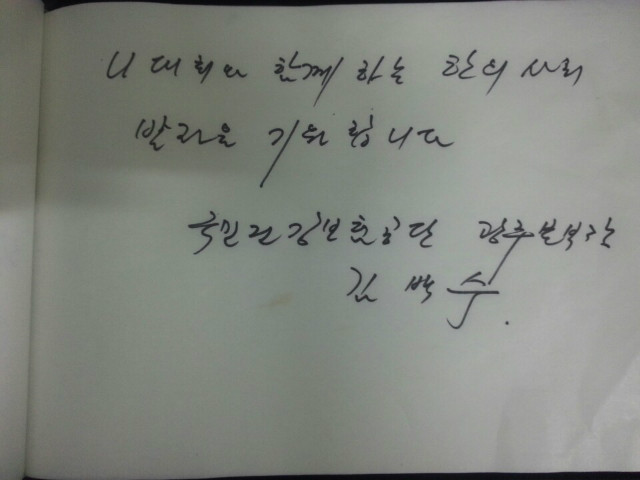 U대회와 함께하는 한의사회
발전을 기원합니다
국민건강보험공단 광주본부장
김백수.